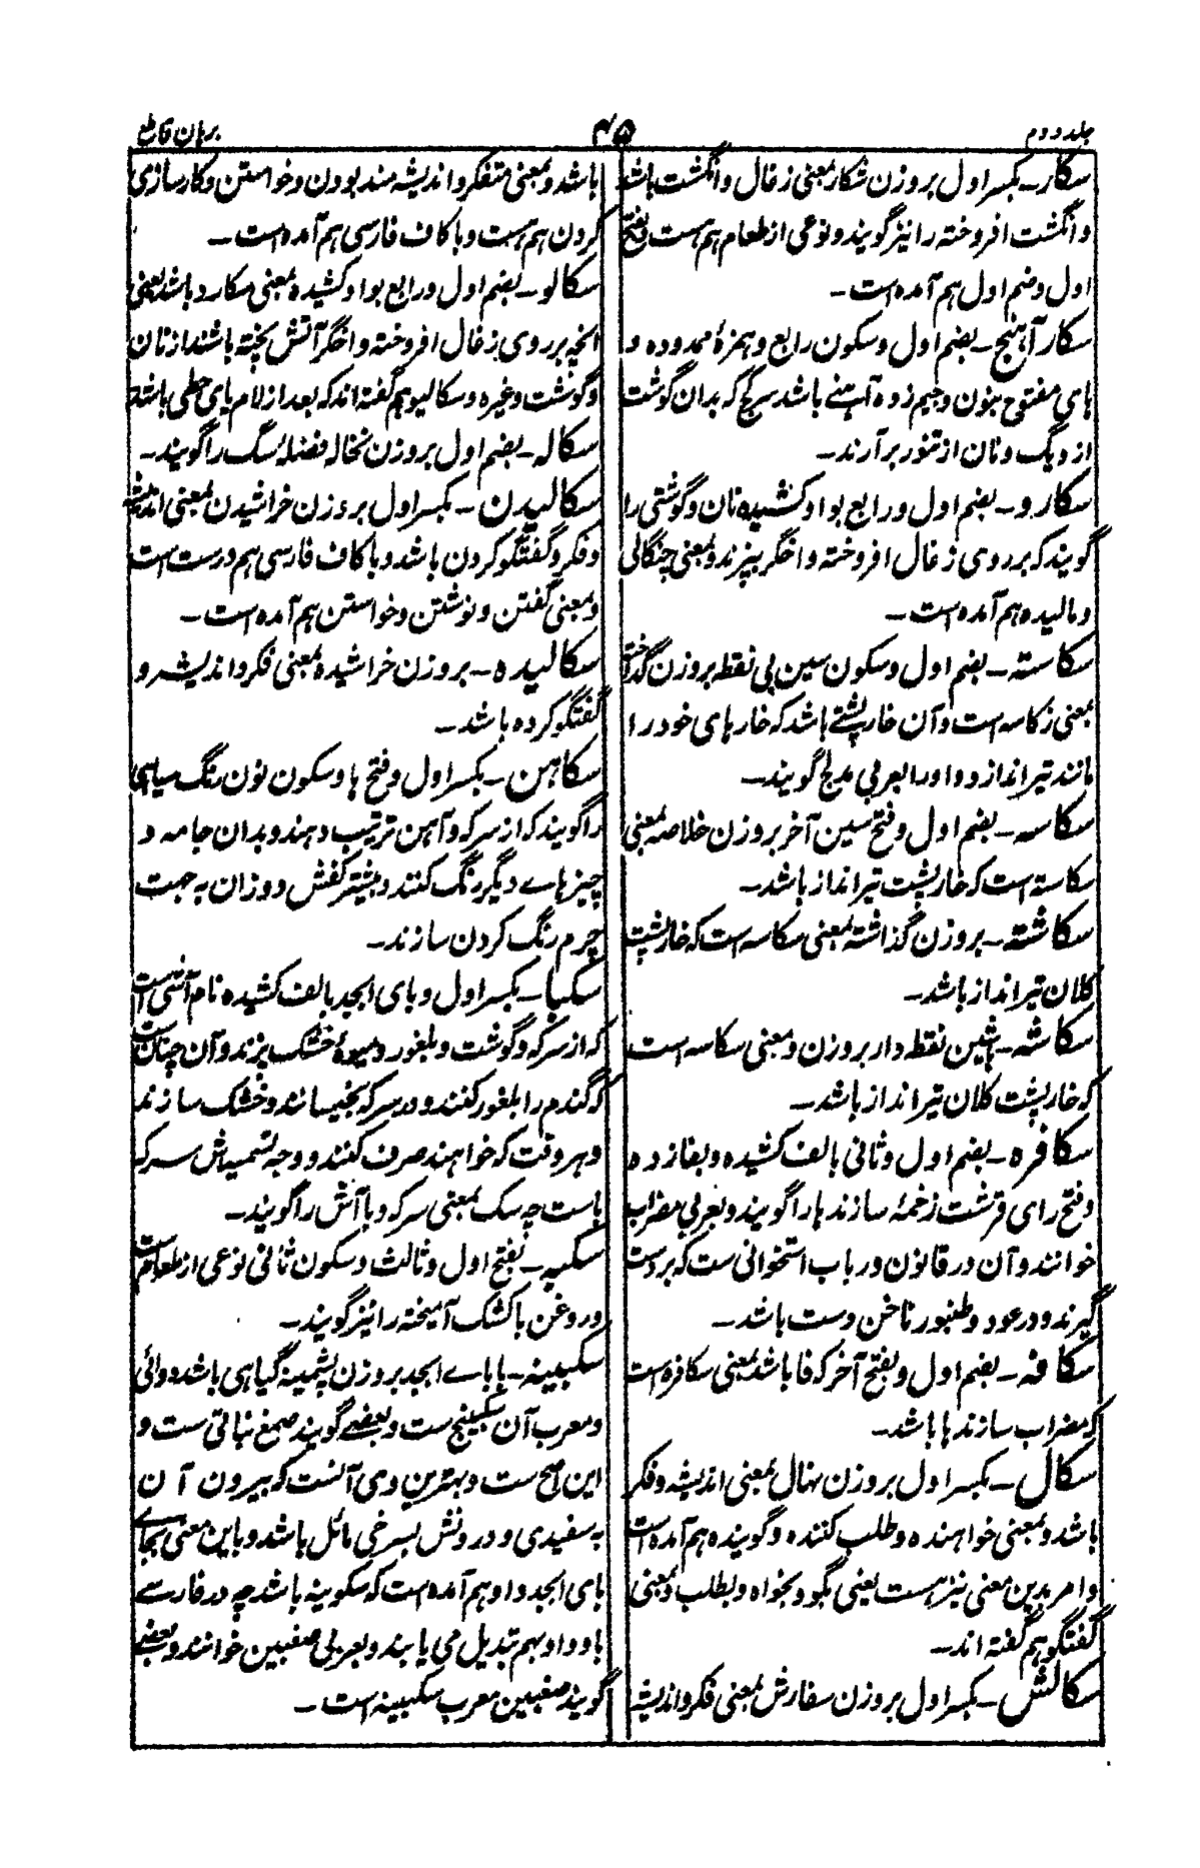 جلد دوم
۴۵
برہان قاطع
سکار ـ بکسر اول بروزن شکار بمعنی زغال و انگشت باشد
و انگشت افروخته را نیز گویند و نوعی از طعام هم هست و بفتح
اول و ضم اول هم آمده است ـ
سکار آہنج ـ بضم اول و سکون رابع و همزهٔ ممدوده و
ہای مفتوح بنون و جیم زده آہنے باشد سرکج که بدان گوشت
از دیگ و نان از تنور برآرند ـ
سکارو ـ بضم اول و رابع بواو کشیده نان و گوشتی را
گویند که بر روی زغال افروخته و اخگر بپزند و بمعنی چنگالی
و مالیده هم آمده است ـ
سکاسته ـ بضم اول و سکون سین بی نقطه بروزن گداخته
بمعنی زکاسه است و آن خارپشتے باشد که خارهای خود را
مانند تیر اندازد و او را بعربی مدلج گویند ـ
سکاسه ـ بضم اول و فتح سین آخر بروزن خلاصه بمعنی
سکاسته است که خارپشت تیرانداز باشد ـ
سکاشته ـ بروزن گذاشته بمعنی سکاسه است که خارپشت
کلان تیرانداز باشد ـ
سکاشه ـ بشین نقطه دار بروزن و معنی سکاسه است
که خارپشت کلان تیرانداز باشد ـ
سکافره ـ بضم اول و ثانی بالف کشیده و بفا زده
و فتح رای قرشت زخمهٔ سازندہا را گویند و بعربی مضراب
خوانند و آن در قانون و رباب استخوانی ست که بر دست
گیرند و در عود و طنبور ناخن دست باشد ـ
سکافه ـ بضم اول و بفتح آخر که فا باشد بمعنی سکافره است
که مضراب سازندہا باشد ـ
سکال ـ بکسر اول بروزن نہال بمعنی اندیشه و فکر
باشد و بمعنی خواہنده و طلب کننده و گوینده هم آمده است
و امر بدین معنی نیز ہست یعنی بگو و بخواه و بطلب و بمعنی
گفتگو هم گفته اند ـ
سکالش ـ بکسر اول بروزن سفارش بمعنی فکر و اندیشه
باشد و بمعنی متفکر و اندیشه مند بودن و خواستن و کارسازی
کردن هم ہست و با کاف فارسی هم آمده است ـ
سکالو ـ بضم اول و رابع بواو کشیده بمعنی سکارو باشد یعنی
آنچه بر روی زغال افروخته و اخگر آتش پخته باشند از نان
و گوشت و غیره و سکالیو هم گفته اند که بعد از لام یای حطی باشد
سکاله ـ بضم اول بروزن نخاله فضلهٔ سگ را گویند ـ
سکالیدن ـ بکسر اول بروزن خراشیدن بمعنی اندیشه
و فکر و گفتگو کردن باشد و با کاف فارسی هم درست است
و بمعنی گفتن و نوشتن و خواستن هم آمده است ـ
سکالیده ـ بروزن خراشیده بمعنی فکر و اندیشه و
گفتگو کرده باشد ـ
سکاہن ـ بکسر اول و فتح ہا و سکون نون رنگ سیاہی
را گویند که از سرکه و آہن ترتیب دہند و بدان جامه و
چیزہاے دیگر رنگ کنند و بیشتر کفش دوزان به جہت
چرم رنگ کردن سازند ـ
سکبا ـ بکسر اول و بای ابجد بالف کشیده نام آشی است
که از سرکه و گوشت و بلغور و میوهٔ خشک پزند و آن چنانست
که گندم را بلغور کنند و در سرکه بخیسانند و خشک سازند
و ہر وقت که خواہند صرف کنند و وجه تسمیه‌اش سرکه
باست چه سک بمعنی سرکه و با آش را گویند ـ
سکبه ـ بفتح اول و ثالث و سکون ثانی نوعی از طعام است
و روغن با کشک آمیخته را نیز گویند ـ
سکبینه ـ با باے ابجد بروزن پشمینه گیاہی باشد دوائی
و معرب آن سکبینج ست و بعضے گویند صمغ نباتی ست و
این اصح ست و بہترین وی آنست که بیرون آن
به سفیدی و درونش بسرخی مائل باشد و باین معنی بجاے
بای ابجد واو هم آمده است که سکوینه باشد چه در فارسے
با و واو بہم تبدیل می یابند و بعربی صغبین خوانند و بعضے
گویند صغبین معرب سکبینه است ـ